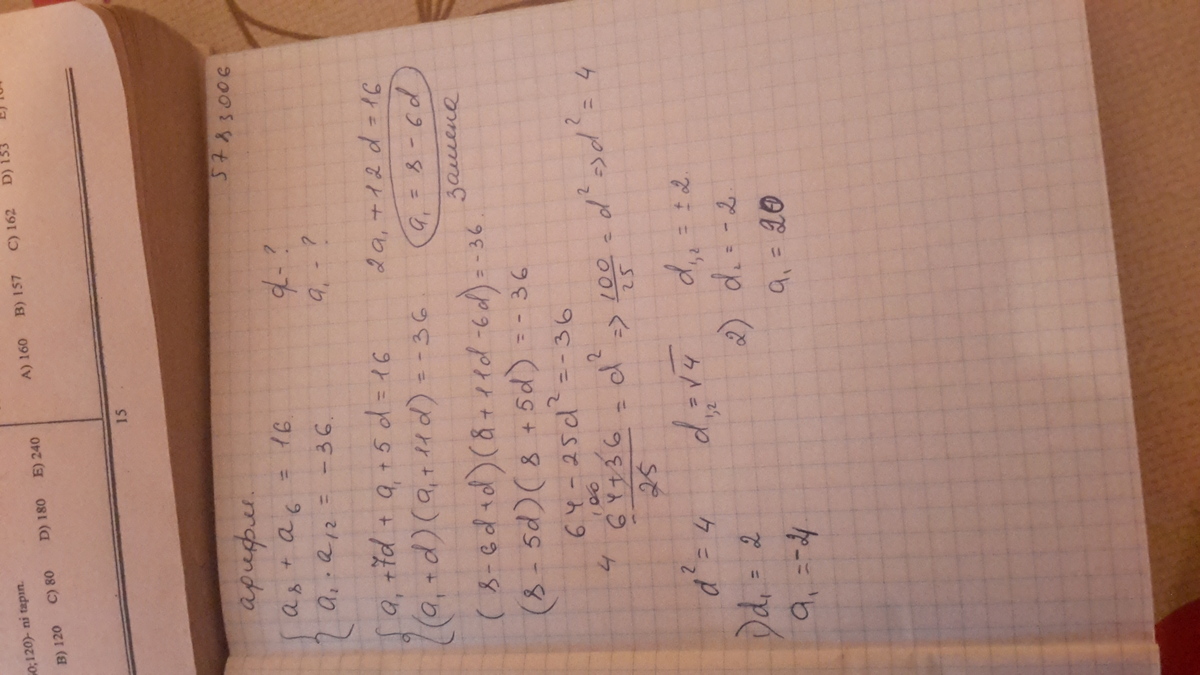 0;120)- ni tapın.
B) 120 C) 80 D) 180 E) 240
A) 160 B) 157 C) 162 D) 153
15
5783006
арифм.
{ a₈ + a₆ = 16 d - ?
a₁ · a₁₂ = -36. a₁ - ?
{ a₁ + 7d + a₁ + 5d = 16 2a₁ + 12d = 16
(a₁ + d)(a₁ + 11d) = -36 a₁ = 8 - 6d
замена
(8 - 6d + d)(8 + 11d - 6d) = -36.
(8 - 5d)(8 + 5d) = -36
64 - 25d² = -36
4 100
64 + 36 / 25 = d² => 100 / 25 = d² => d² = 4
d² = 4 d₁,₂ = √4 d₁,₂ = ± 2.
1) d₁ = 2 2) d₂ = -2.
a₁ = -4 a₁ = 20